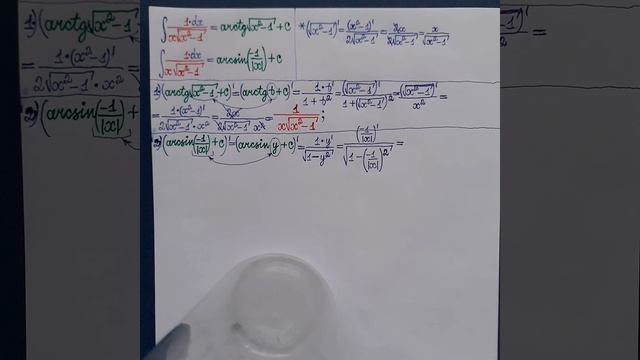 ∫ 1·dx / x√(x²-1) = arctg√(x²-1) + c
∫ 1·dx / x√(x²-1) = arcsin(-1/|x|) + c
*(√(x²-1))' = (x²-1)' / 2√(x²-1) = 2x / 2√(x²-1) = x / √(x²-1)
1) (arctg√(x²-1) + c)' = (arctg b + c)' = 1·b' / 1+b² = (√(x²-1))' / 1+(√(x²-1))² = (√(x²-1))' / x² =
= 1·(x²-1)' / 2√(x²-1)·x² = 2x / 2√(x²-1)·x² = 1 / x√(x²-1) ;
2) (arcsin(-1/|x|) + c)' = (arcsin y + c)' = 1·y' / √(1-y²) = (-1/|x|)' / √(1-(-1/|x|)²) =